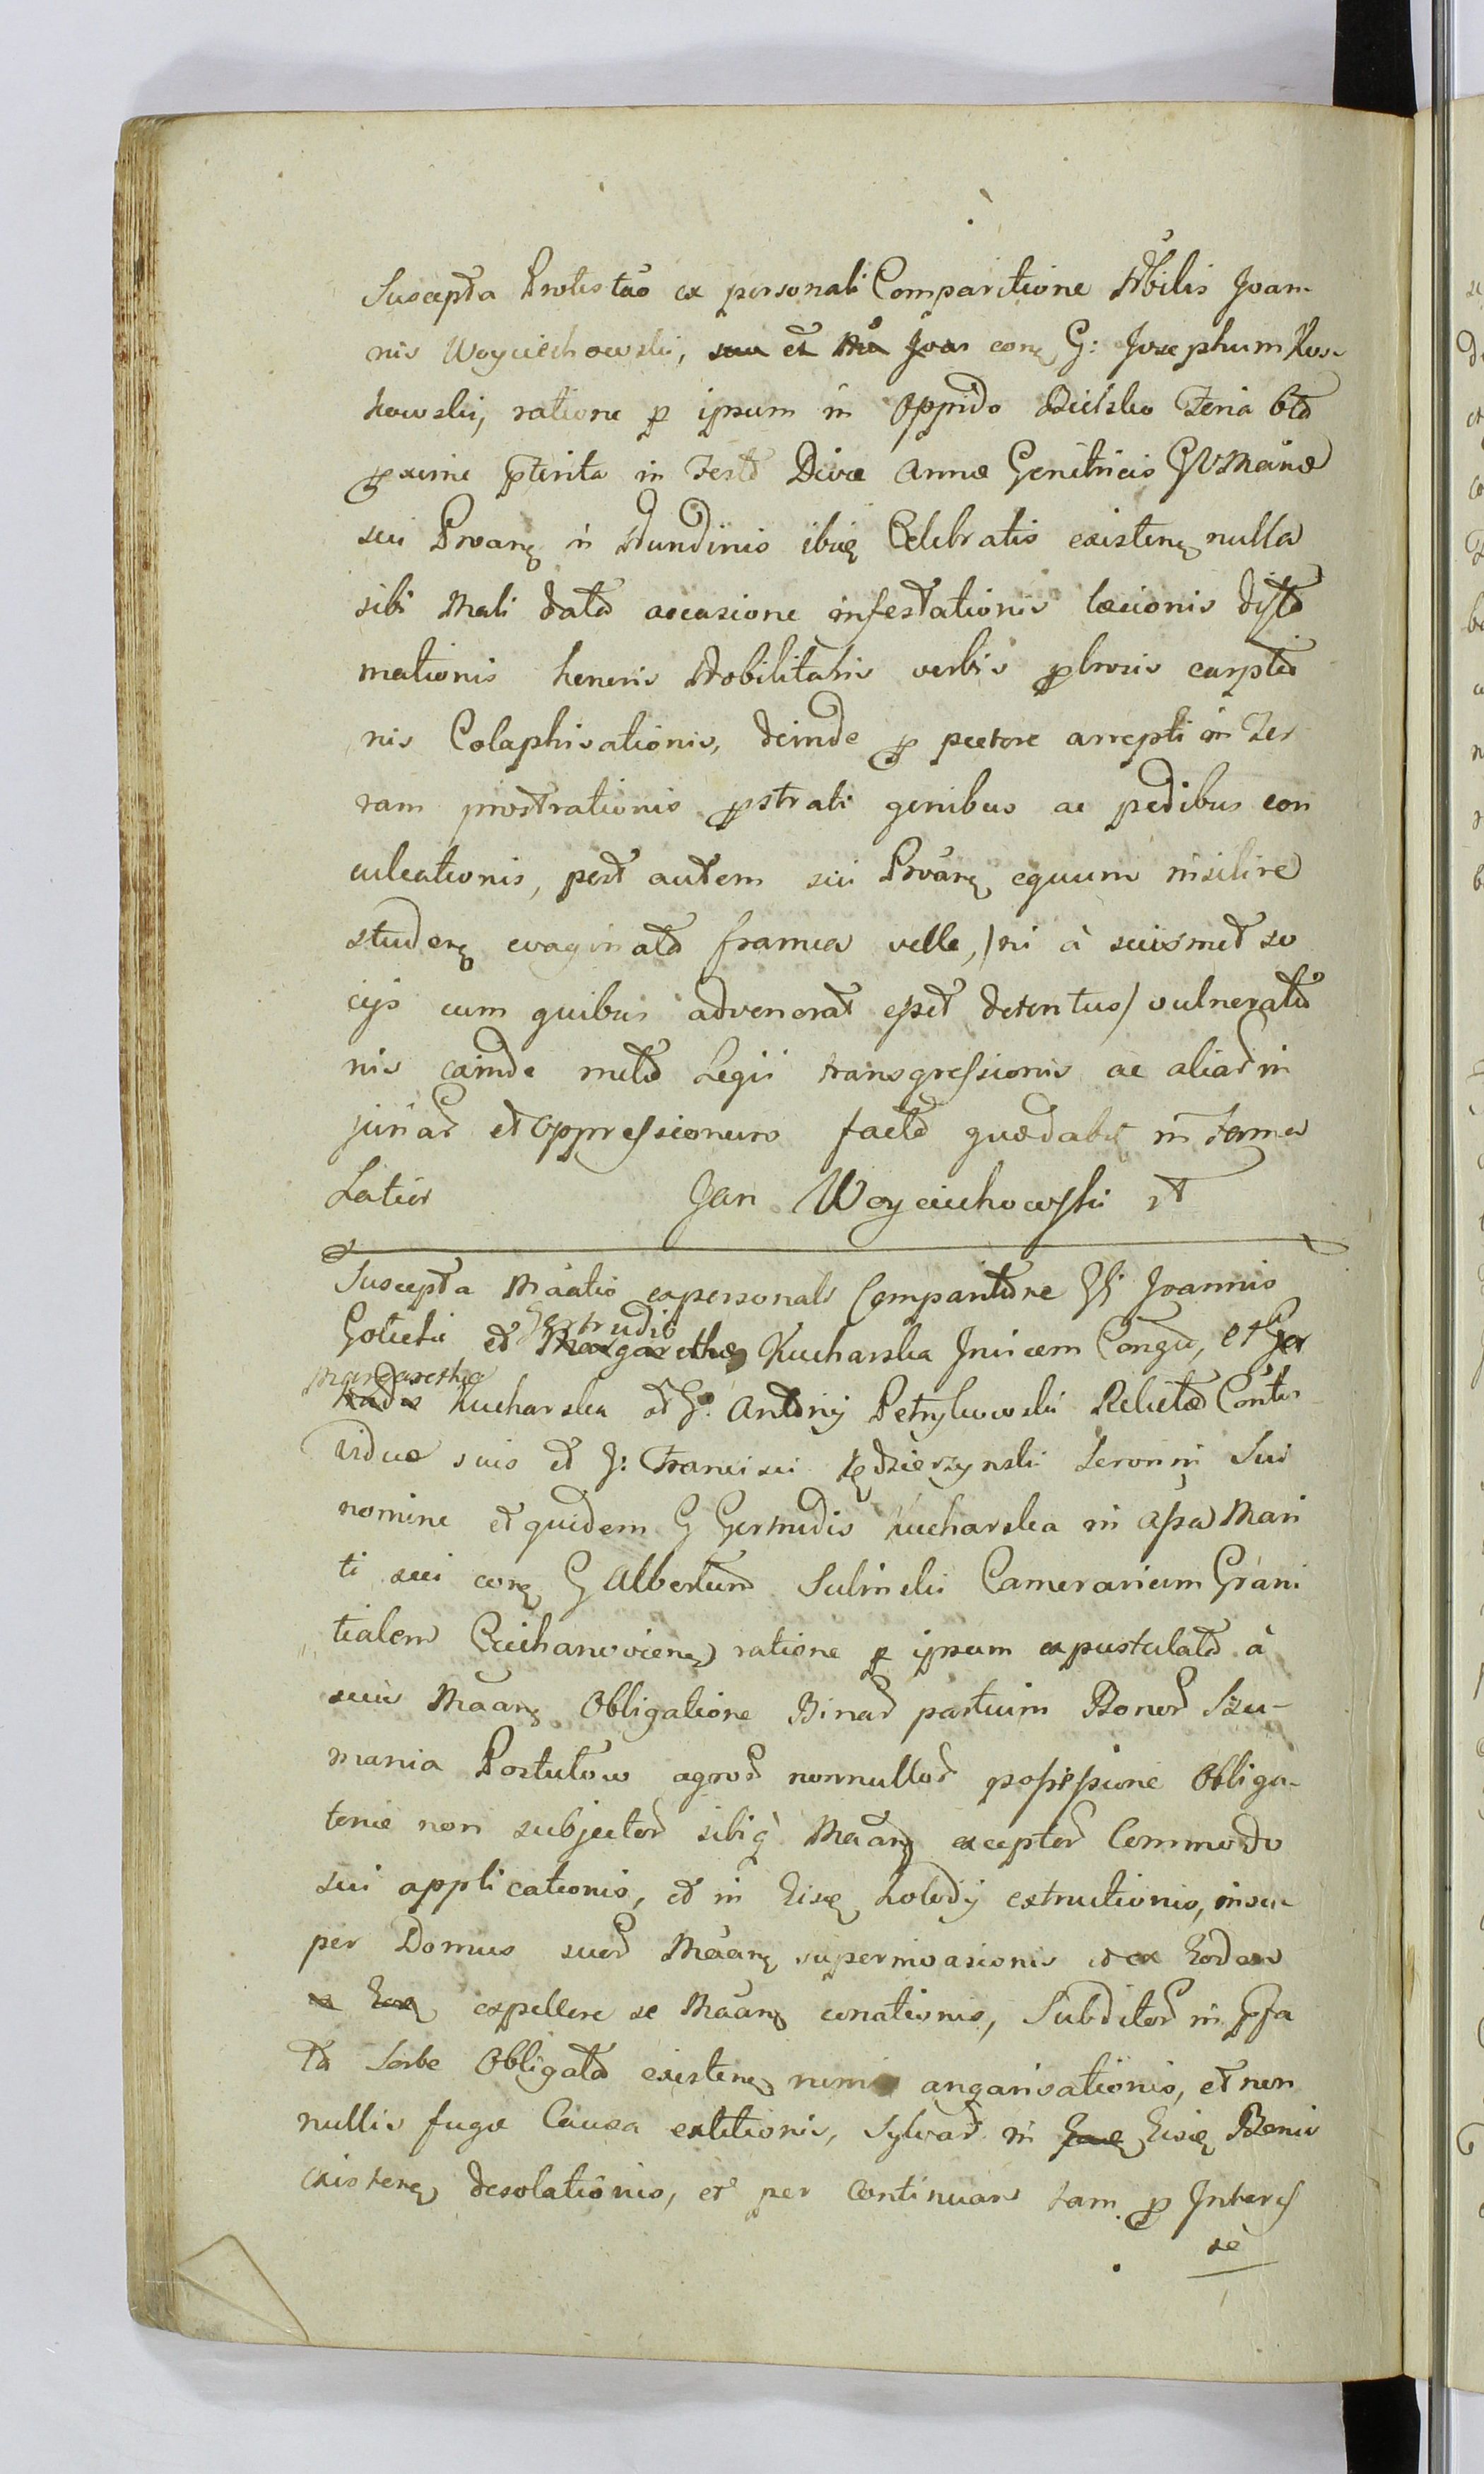 Suscepta Protestao ex personali Comparitione Nbilis Joan-
nis Woyciechowski, sua et Joan conq G: Josephum Kos-
kowski, ratione p ipsum in Oppido Bielsko Feria 6ta
pxime pterita in Festo Divæ Annæ Genitricis GVMariæ
sui Proanq in Nundinis ibiq Celebratis existenq nulla
sibi Mali data occasione infestationis læsionis
mationis heneris Nobilitatis verbis pbrosis
nis Colaphisationis, deinde p pectore arrepti in Ter
ram prostrationis pstrati genibus ac pedibus con
culcationis, post autem sui Proanq equum insilire
studenq evaginata framea velle, /ni à suismet so
cijs cum quibus advenerat esset detentus/ vulneratio
nis eainde Legii transgressionis ac aliar in
juriar et oppressionum facta quædabit in Terma
Latior Jan Woyciechowski
Suscepta Maatio expersonali Comparitione G: Joannis
Gertrudis
Gotieki et Margarethæ Kucharska Invicem Congu, et Ger
Margaretha
trudis Kucharska et G: Antonij Petrykowski Relictæ Contor
viduæ suis et J: Francisci Sui
nomine et quidem G Gertrudis Kucharska in assa Mari
ti sui conq G Albertum Sulinski Camerarium Grani
tialem Ciechanovienq ratione p ipsum expustulata à
suis Maanq Obligatione Binar partium Bonor Szu-
mania Postutow agror nonnullor possessione Obliga-
toriæ non subjector sibiq Maanq exceptor Commodo
sui applicationis, et in Eisq extructionis, insu-
per Domus suor Maanq supernivasionis et ex Eodem
ex Eoq expellere se Maanq conationis, Subditor in pfa
ta Sorte Obligata existenq nimis angarisationis, et non
nullis fugæ Causa extitionis, Sylvar in Eisq Bonis
existenq desolationis, et per continuam tam p Interes
se